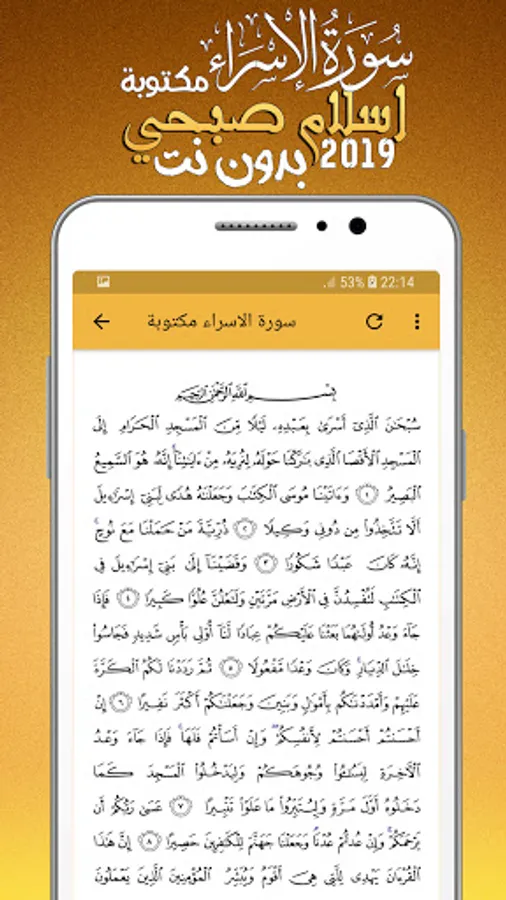 سُورَةُ الإِسْرَاء مكتوبة
اسلام صبحي
2019 بدون نت
53% 22:14
سورة الاسراء مكتوبة
بِسْمِ ٱللَّهِ ٱلرَّحْمَٰنِ ٱلرَّحِيمِ
سُبْحَٰنَ ٱلَّذِىٓ أَسْرَىٰ بِعَبْدِهِۦ لَيْلًا مِّنَ ٱلْمَسْجِدِ ٱلْحَرَامِ إِلَى
ٱلْمَسْجِدِ ٱلْأَقْصَا ٱلَّذِى بَٰرَكْنَا حَوْلَهُۥ لِنُرِيَهُۥ مِنْ ءَايَٰتِنَآ إِنَّهُۥ هُوَ ٱلسَّمِيعُ
ٱلْبَصِيرُ ١ وَءَاتَيْنَا مُوسَى ٱلْكِتَٰبَ وَجَعَلْنَٰهُ هُدًى لِّبَنِىٓ إِسْرَٰٓءِيلَ
أَلَّا تَتَّخِذُوا۟ مِن دُونِى وَكِيلًا ٢ ذُرِّيَّةَ مَنْ حَمَلْنَا مَعَ نُوحٍ
إِنَّهُۥ كَانَ عَبْدًا شَكُورًا ٣ وَقَضَيْنَآ إِلَىٰ بَنِىٓ إِسْرَٰٓءِيلَ فِى
ٱلْكِتَٰبِ لَتُفْسِدُنَّ فِى ٱلْأَرْضِ مَرَّتَيْنِ وَلَتَعْلُنَّ عُلُوًّا كَبِيرًا ٤ فَإِذَا
جَآءَ وَعْدُ أُولَىٰهُمَا بَعَثْنَا عَلَيْكُمْ عِبَادًا لَّنَآ أُو۟لِى بَأْسٍ شَدِيدٍ فَجَاسُوا۟
خِلَٰلَ ٱلدِّيَارِ وَكَانَ وَعْدًا مَّفْعُولًا ٥ ثُمَّ رَدَدْنَا لَكُمُ ٱلْكَرَّةَ
عَلَيْهِمْ وَأَمْدَدْنَٰكُم بِأَمْوَٰلٍ وَبَنِينَ وَجَعَلْنَٰكُمْ أَكْثَرَ نَفِيرًا ٦ إِنْ
أَحْسَنتُمْ أَحْسَنتُمْ لِأَنفُسِكُمْ وَإِنْ أَسَأْتُمْ فَلَهَا فَإِذَا جَآءَ وَعْدُ
ٱلْءَاخِرَةِ لِيَسُۥٓـُٔوا۟ وُجُوهَكُمْ وَلِيَدْخُلُوا۟ ٱلْمَسْجِدَ كَمَا
دَخَلُوهُ أَوَّلَ مَرَّةٍ وَلِيُتَبِّرُوا۟ مَا عَلَوْا۟ تَتْبِيرًا ٧ عَسَىٰ رَبُّكُمْ أَن
يَرْحَمَكُمْ وَإِنْ عُدتُّمْ عُدْنَا وَجَعَلْنَا جَهَنَّمَ لِلْكَٰفِرِينَ حَصِيرًا ٨ إِنَّ هَٰذَا
ٱلْقُرْءَانَ يَهْدِى لِلَّتِى هِىَ أَقْوَمُ وَيُبَشِّرُ ٱلْمُؤْمِنِينَ ٱلَّذِينَ يَعْمَلُونَ